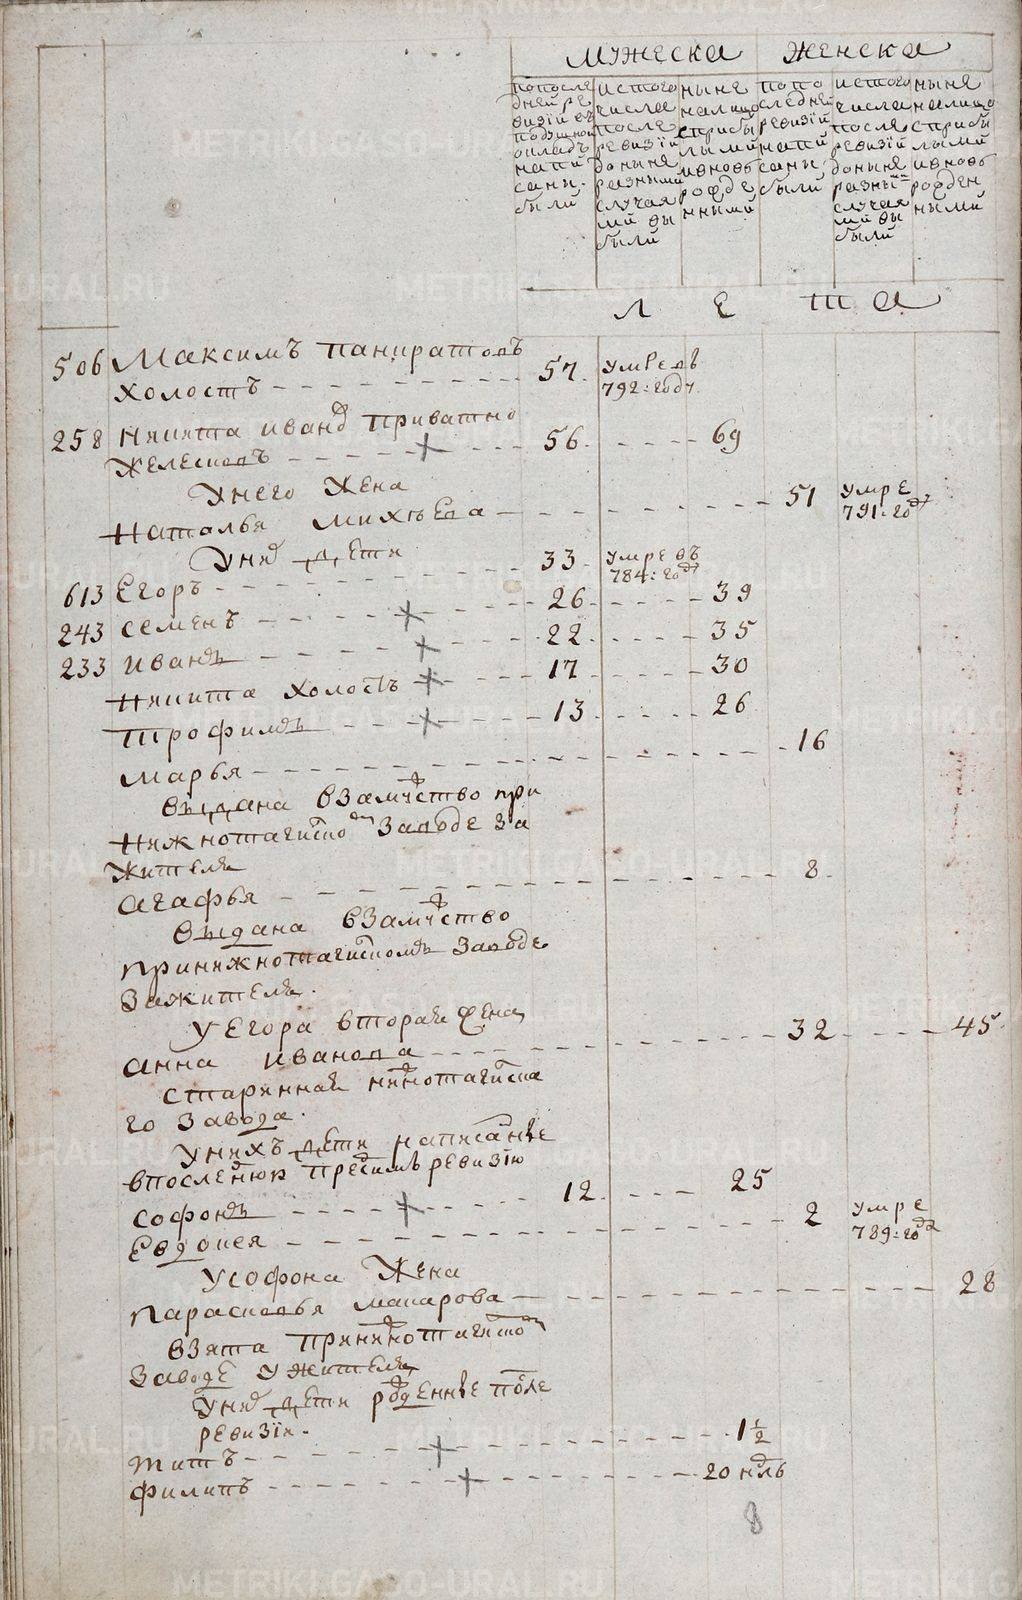 мужеска женска
попосле
дней ре
визии въ
подушной
окладъ
напи
саны.
были
истого
числа
после
ревизiи
доныне
разными
случая
ми вы
были
ныне
налицо
сприбы
лыми
ивновь
рожде
нными
попо
следней
ревизiй
напи
саны
были
истого
числа
после
ревизiй
доныне
разны
случая
ми вы
были
ныне
налицо
сприбы
лыми
ивновь
рожден
ными
Лета
506 Максимъ панкратовъ
холостъ 57. умре въ 792: году
258 Никита иванов приватно
железновъ 56. 69
Унего жена
Наталья михеева 51 умре 791: год
Уних дети
613 Егоръ 33. умре въ 784: год
243 семенъ 26. 39
233 иванъ 22. 35
Никита холостъ 17 30
трофимъ 13. 26
марья 16
выдана взамужство при
Нижнотагилско Заводе За
жителя
агафья 8.
выдана взамужство
принижнотагилскомъ Заводе
Зажителя.
уЕгора вторая жена
анна иванова 32 45.
старинная нижнотагилска
го Завода.
Унихъ дети написанные
впоследнюю пред симъ ревизiю
софонъ 12. 25
Евдокея 2 умре 789: год
усофона Жена
парасковья макарова 28
взята принижнотагилско
Заводе ужителя
Уних дети рожденные после
ревизiи.
титъ 1 1/2
филипъ 20 нль
8
METRIKI.GASO-URAL.RU